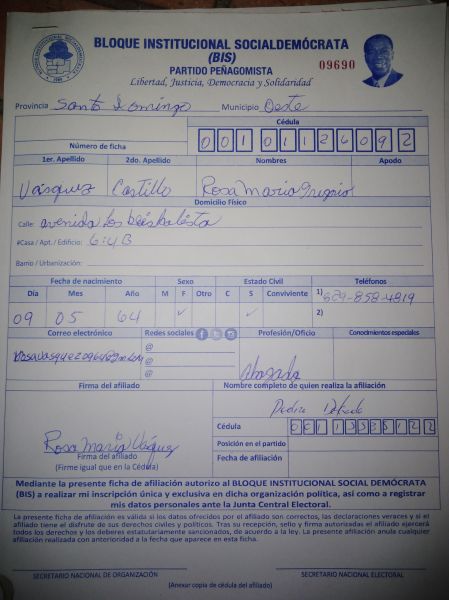 BLOQUE INSTITUCIONAL SOCIALDEMÓCRATA
(BIS)
PARTIDO PEÑAGOMISTA
09690
Libertad, Justicia, Democracia y Solidaridad
Provincia Santo Domingo Municipio Oeste
Cédula
Número de ficha 00101126092
1er. Apellido 2do. Apellido Nombres Apodo
Vásquez Castillo Rosa Maria Gregorio
Domicilio Físico
Calle: avenida los beisbolista
#Casa / Apt. / Edificio: 6:4B
Barrio / Urbanización:
Fecha de nacimiento Sexo Estado Civil Teléfonos
Día Mes Año M F Otro C S Conviviente 1) 829-858-4819
09 05 64 ✓ ✓ 2)
Correo electrónico Redes sociales Profesión/Oficio Conocimientos especiales
@
@
@
Abogada
Firma del afiliado Nombre completo de quien realiza la afiliación
Pedro
Cédula
Rosa Maria Vásquez
Posición en el partido
Firma del afiliado
(Firme igual que en la Cédula)
Fecha de afiliación
Mediante la presente ficha de afiliación autorizo al BLOQUE INSTITUCIONAL SOCIAL DEMÓCRATA
(BIS) a realizar mi inscripción única y exclusiva en dicha organización política, así como a registrar
mis datos personales ante la Junta Central Electoral.
La presente ficha de afiliación es válida si los datos ofrecidos por el afiliado son correctos, las declaraciones veraces y si el
afiliado tiene el disfrute de sus derechos civiles y políticos. Tras su recepción, sello y firma autorizada el afiliado ejercerá
todos los derechos y los deberes estatutariamente sancionados, de acuerdo a la ley. La presente afiliación anula cualquier
afiliación realizada con anterioridad a la fecha que aparece en esta ficha.
SECRETARIO NACIONAL DE ORGANIZACIÓN SECRETARIO NACIONAL ELECTORAL
(Anexar copia de cédula del afiliado)